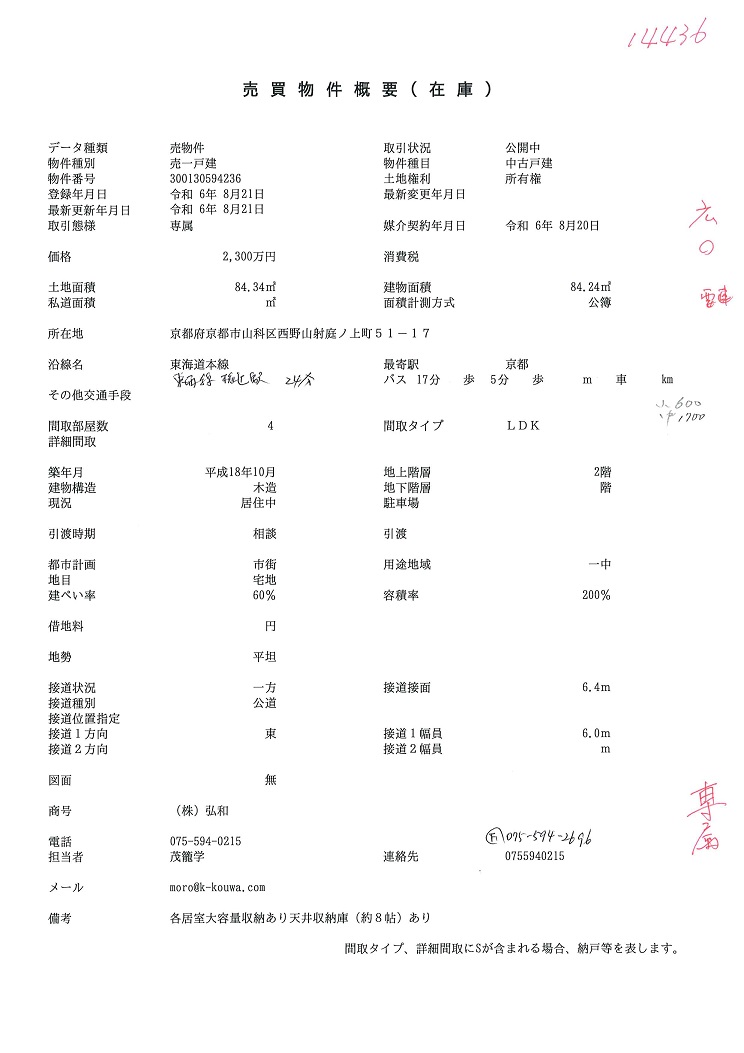 14436
売買物件概要(在庫)
データ種類 売物件 取引状況 公開中
物件種別 売一戸建 物件種目 中古戸建
物件番号 300130594236 土地権利 所有権
登録年月日 令和 6年 8月21日 最新変更年月日
最新更新年月日 令和 6年 8月21日
取引態様 専属 媒介契約年月日 令和 6年 8月20日
広
価格 2,300万円 消費税
土地面積 84.34㎡ 建物面積 84.24㎡
私道面積 ㎡ 面積計測方式 公簿
所在地 京都府京都市山科区西野山射庭ノ上町51-17
沿線名 東海道本線 最寄駅 京都
東西線 椥辻駅 24分 バス 17分 歩 5分 歩 m 車 km
その他交通手段
小600
中1700
間取部屋数 4 間取タイプ LDK
詳細間取
築年月 平成18年10月 地上階層 2階
建物構造 木造 地下階層 階
現況 居住中 駐車場
引渡時期 相談 引渡
都市計画 市街 用途地域 一中
地目 宅地
建ぺい率 60% 容積率 200%
借地料 円
地勢 平坦
接道状況 一方 接道接面 6.4m
接道種別 公道
接道位置指定
接道1方向 東 接道1幅員 6.0m
接道2方向 接道2幅員 m
図面 無
専属
商号 (株)弘和
電話 075-594-0215 Ⓕ075-594-2696
担当者 茂籠学 連絡先 0755940215
メール moro@k-kouwa.com
備考 各居室大容量収納あり天井収納庫(約8帖)あり
間取タイプ、詳細間取にSが含まれる場合、納戸等を表します。